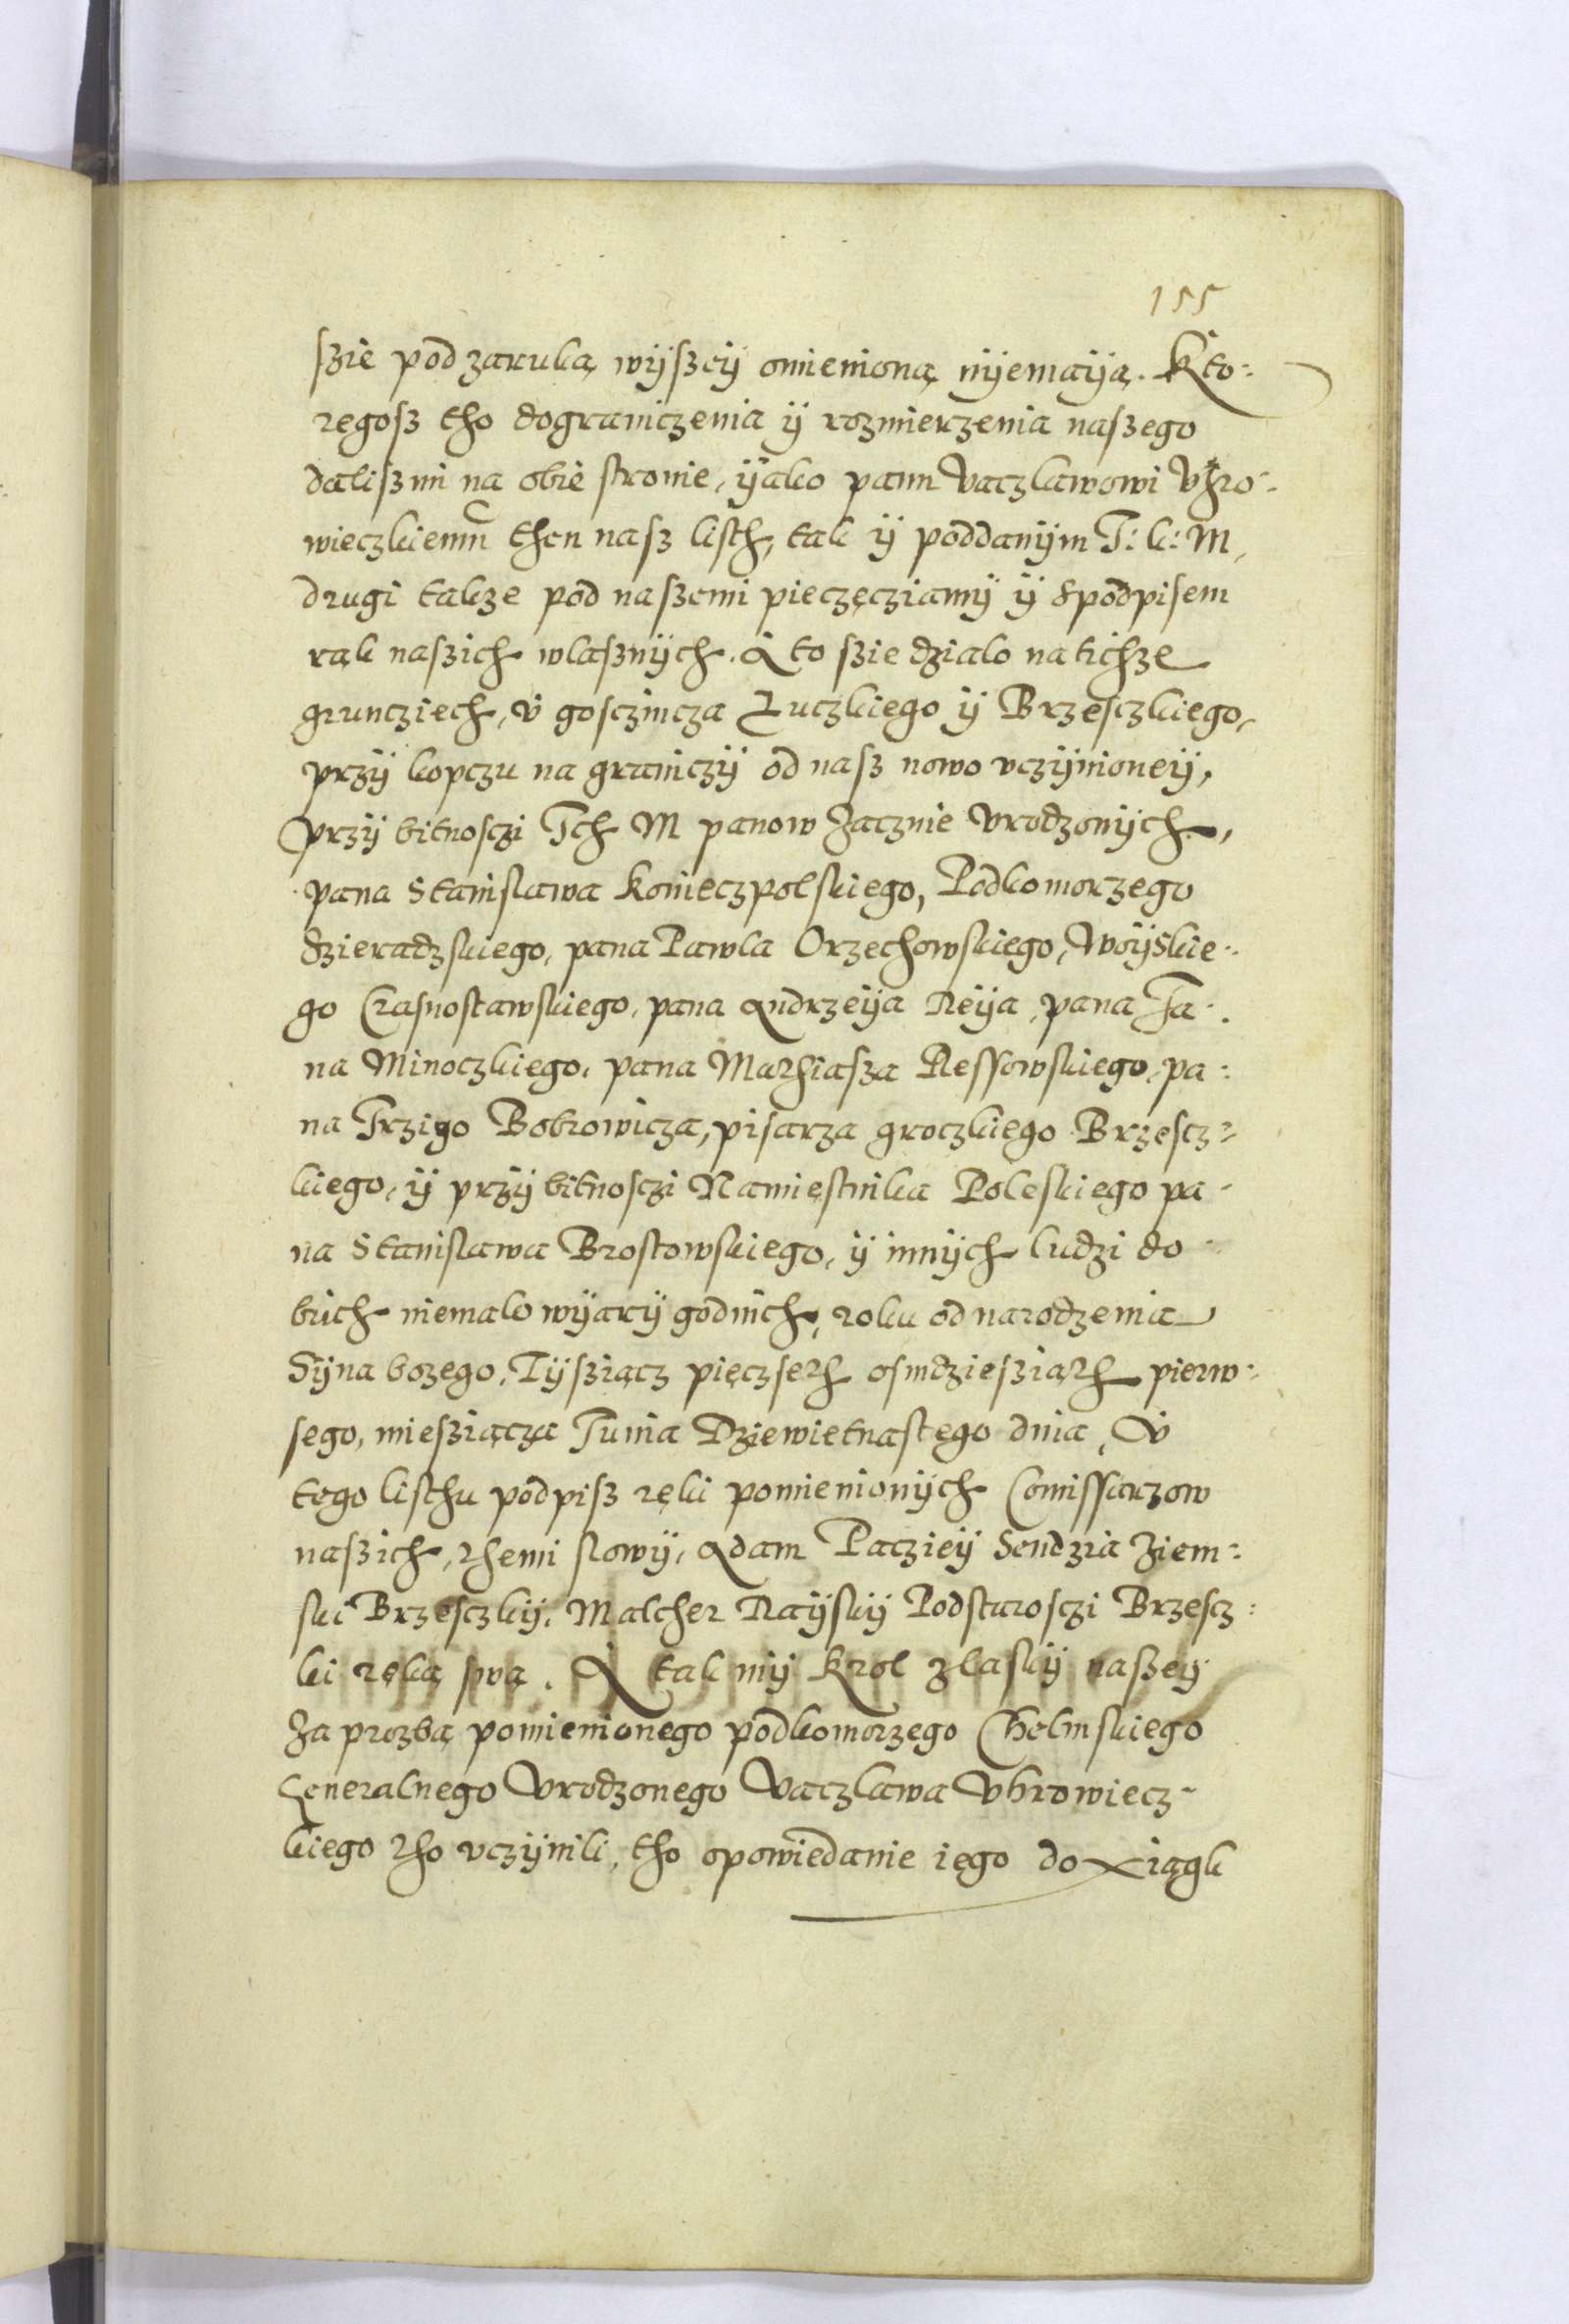 155
szie pod zaruką wÿszeÿ omienioną nÿemaÿą. Kto:
regosz tho dograniczenia ÿ rozmierzenia naszego
daliszmi na obie stronie, ÿako panu Vaczlawowi Vhro-
wieczkiemu then nasz listh, tak ÿ poddanÿm J: k: M,
drugi takze pod naszemi pieczęcziamÿ ÿ Spodpisem
rąk naszich wlasznÿch. A to szie dzialo na tichze
grunczech, v gosczincza Łuczkiego ÿ Brzesczkiego,
przÿ kopczu na graniczÿ od nasz nowo vczÿnioneÿ,
przÿ bitnosczi Jch M panow Zacznie Vrodzonÿch,
pana Stanislawa Konieczpolskiego, Podkomorzego
Szieradzskiego, pana Pawla Orzechowskiego, Woÿskie-
go Crasnostawskiego, pana Andrzeÿa Reÿa, pana Ja-
na Minoczkiego, pana Mathiasza Ressowskiego, pa:
na Jrzigo Bobrowicza, pisarza groczkiego Brzescz-
kiego, ÿ przÿ bitnosczi Namiestnika Poleskiego pa-
na Stanislawa Brostowskiego, ÿ innÿch ludzi do-
brich niemalo wÿarÿ godnich, roku od narodzenia
Sÿna bozego, Tÿsziącz pięczseth osmdziesziąth pierw:
sego, miesziącza Junia Dziewietnastego dnia, V
tego listhu podpisz ręki pomienionÿch Comissarzow
naszich, themi slowÿ, Adam Paczieÿ Sendzia Ziem:
ski Brzesczkÿ, Malcher Raÿskÿ Podstarosczi Brzescz:
ki ręką swą. A tak mÿ Krol z laskÿ naszeÿ
Za prozbą pomienionego podkomorzego Chelmskiego
Generalnego Vrodzonego Vaczlawa Vhrowiecz-
kiego tho vczÿnili, tho opowiedanie iego do xiągk